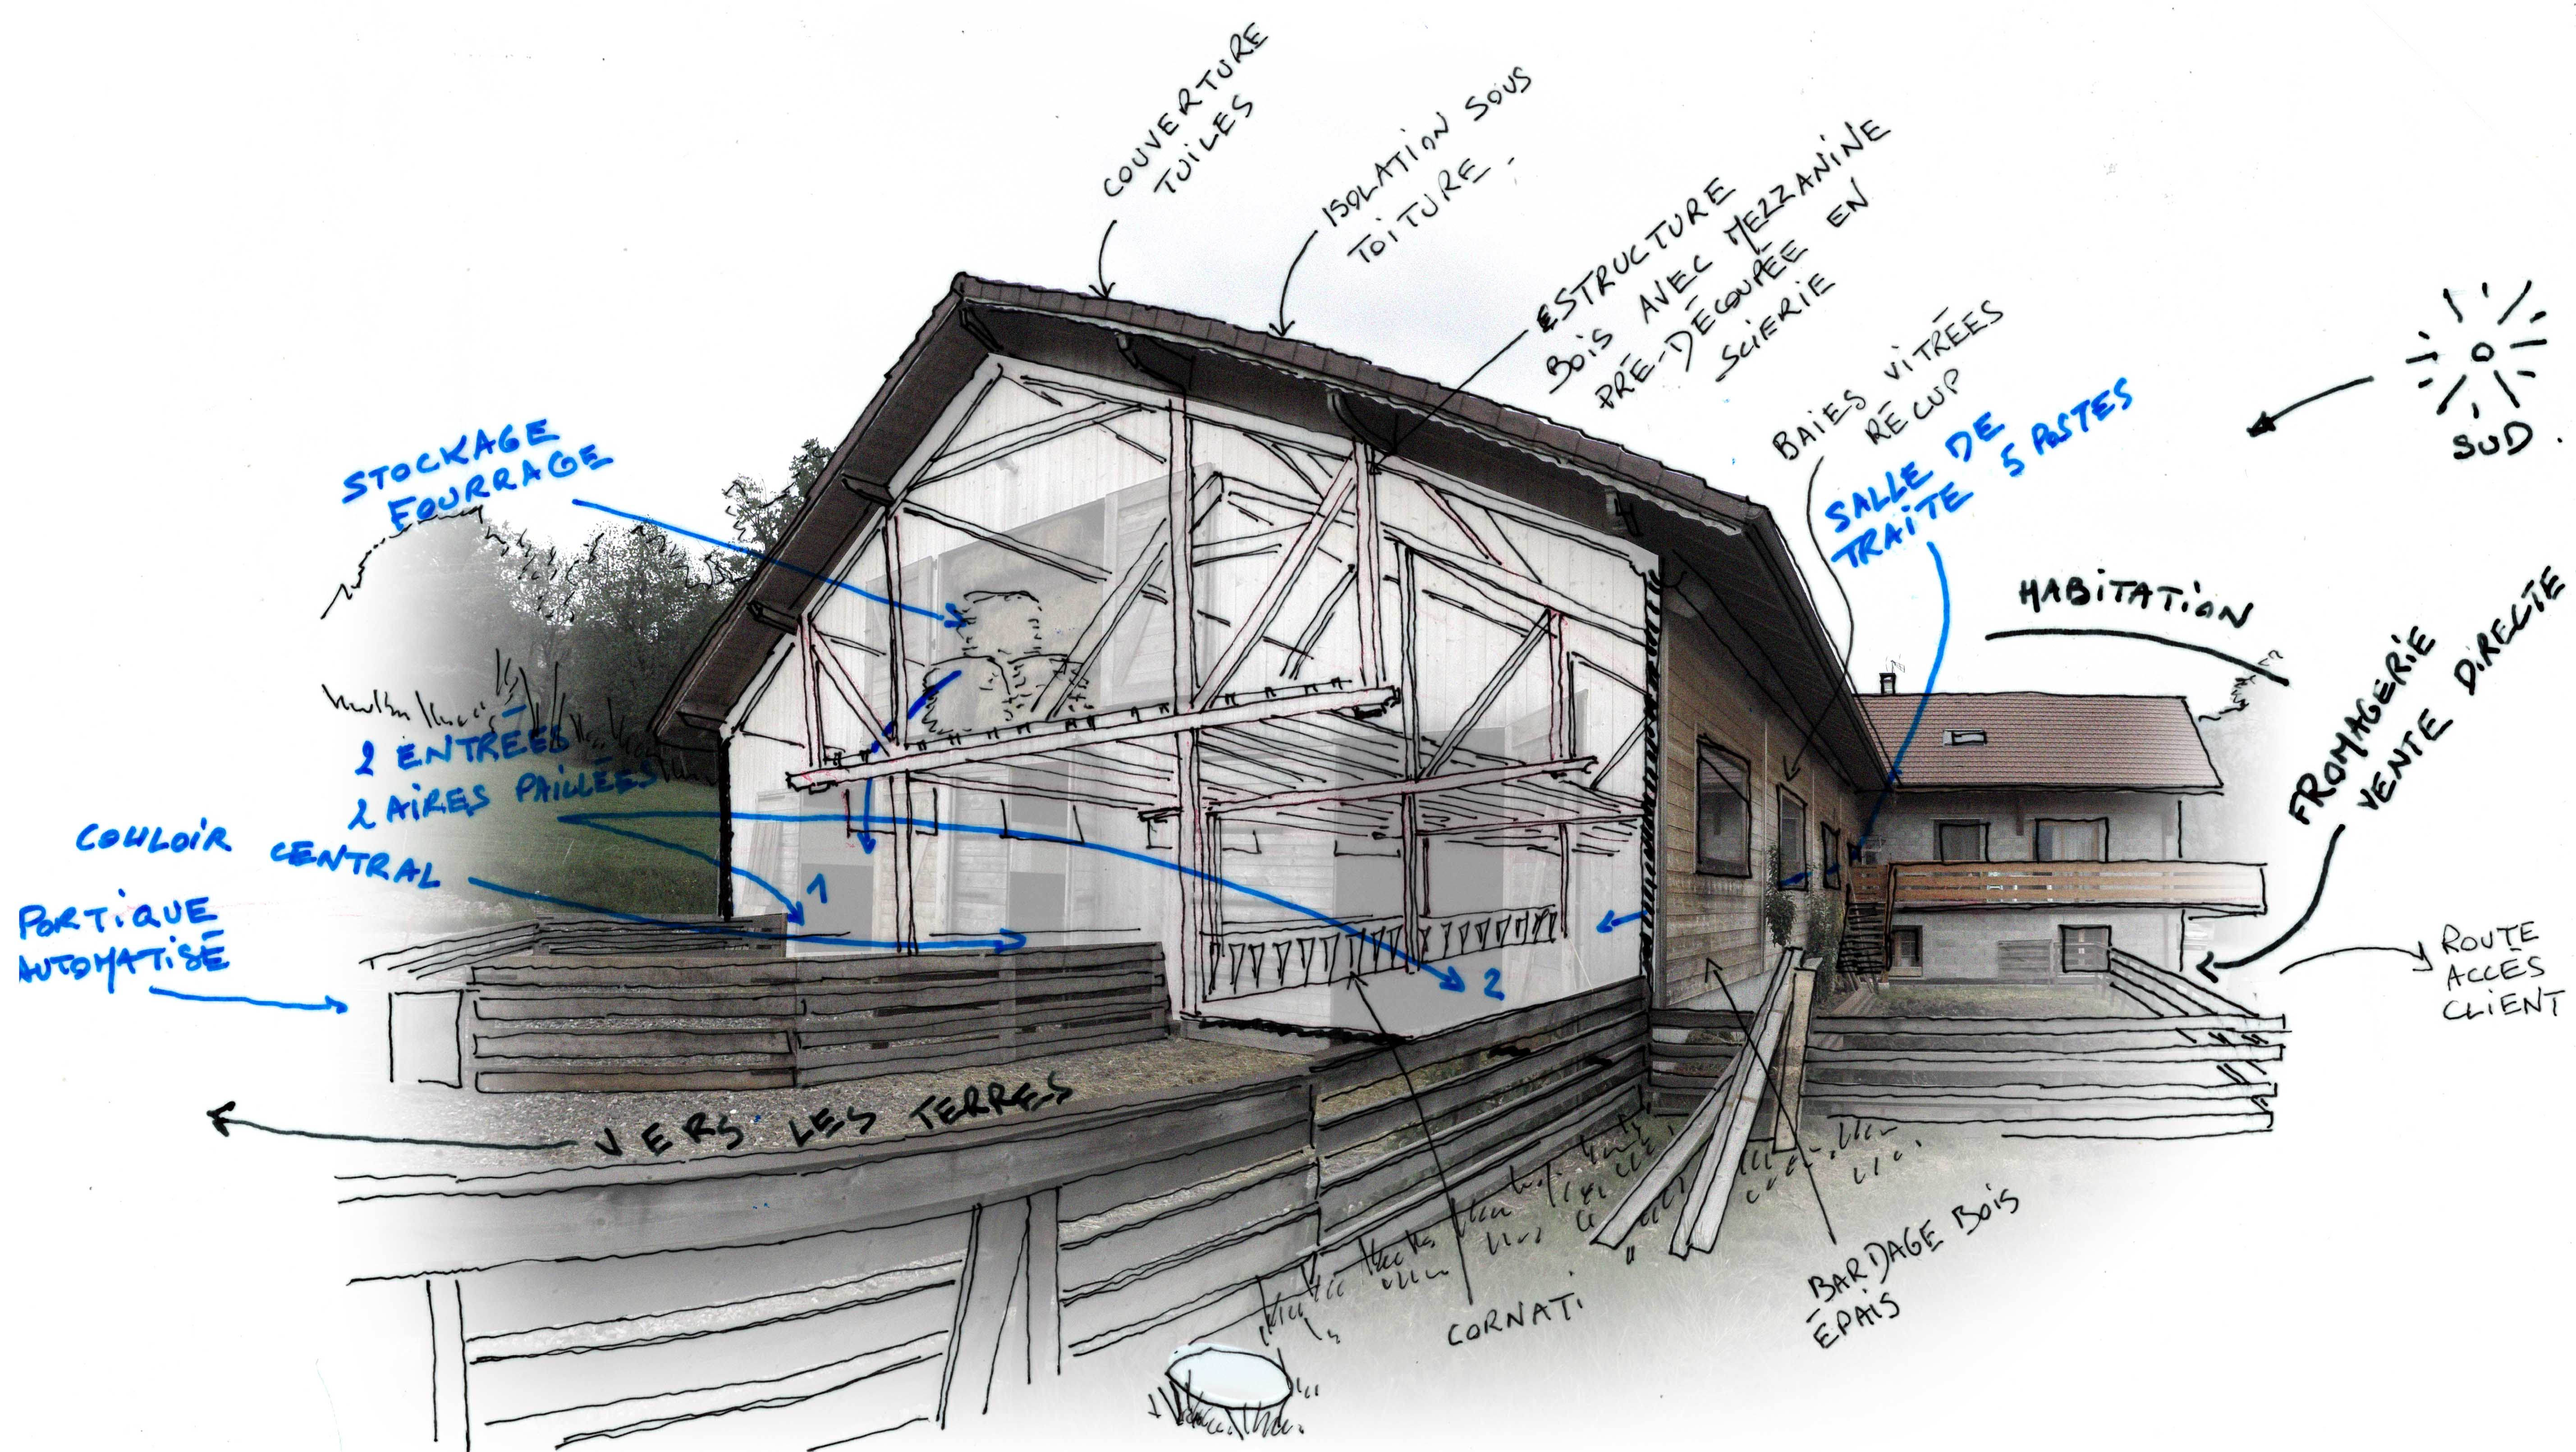 COUVERTURE
TUILES
ISOLATION SOUS
TOITURE
STRUCTURE
BOIS AVEC MEZZANINE
PRÉ-DÉCOUPÉE EN
SCIERIE
BAIES VITRÉES
RÉCUP
SALLE DE
TRAITE 5 POSTES
SUD.
HABITATION
FROMAGERIE
VENTE DIRECTE
ROUTE
ACCÈS
CLIENT
STOCKAGE
FOURRAGE
2 ENTRÉES
2 AIRES PAILLÉES
COULOIR
CENTRAL
PORTIQUE
AUTOMATISÉ
1
2
VERS LES TERRES
CORNATI
BARDAGE BOIS
ÉPAIS